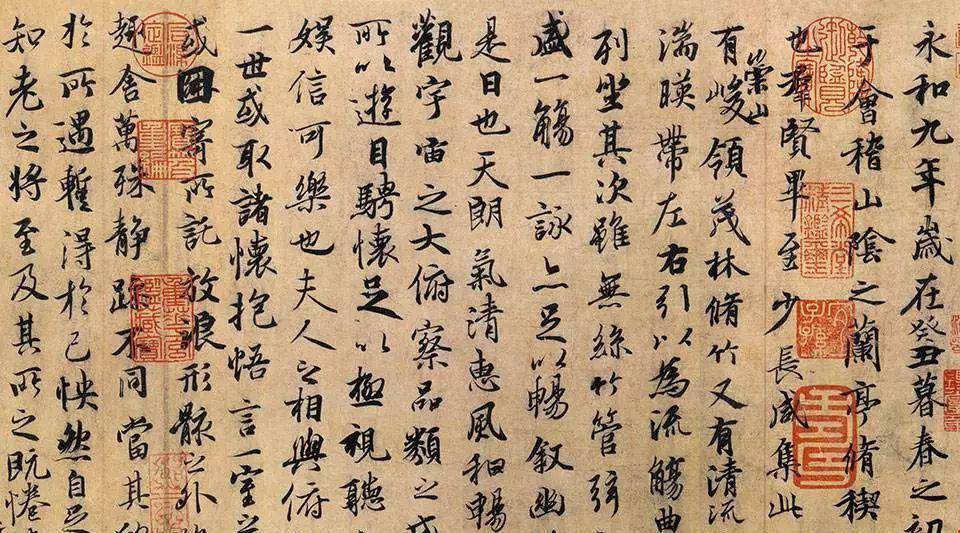 永和九年歲在癸丑暮春之初
于會稽山陰之蘭亭脩稧
也羣賢畢至少長咸集此
有崇山峻領茂林脩竹又有清流
湍暎帶左右引以為流觴曲
列坐其次雖無絲竹管弦
盛一觴一詠亦足以暢敘幽
是日也天朗氣清惠風和暢
觀宇宙之大俯察品類之盛
所以遊目騁懷足以極視聽
娛信可樂也夫人之相與俯
一世或取諸懷抱悟言一室之
或因寄所託放浪形骸之外
趣舍萬殊靜躁不同當其
於所遇暫得於己怏然自足
知老之將至及其所之既惓